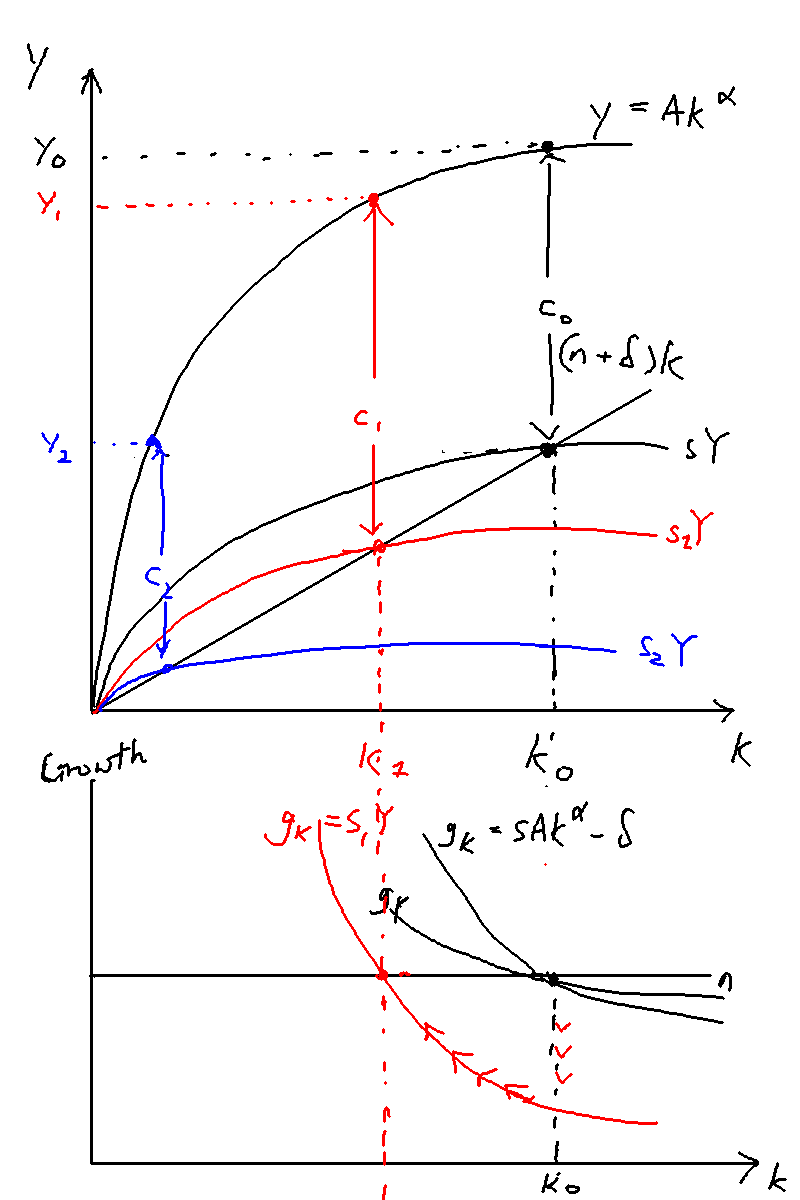 y
y = Ak^α
Y₀
Y₁
c₀
(n + δ)k
c₁
Y₂
sY
s₁Y
c₂
s₂Y
k₁
k₀
k
Growth
g_K = s₁Y
g_K = sAk^α - δ
g_Y
n
k₀
k